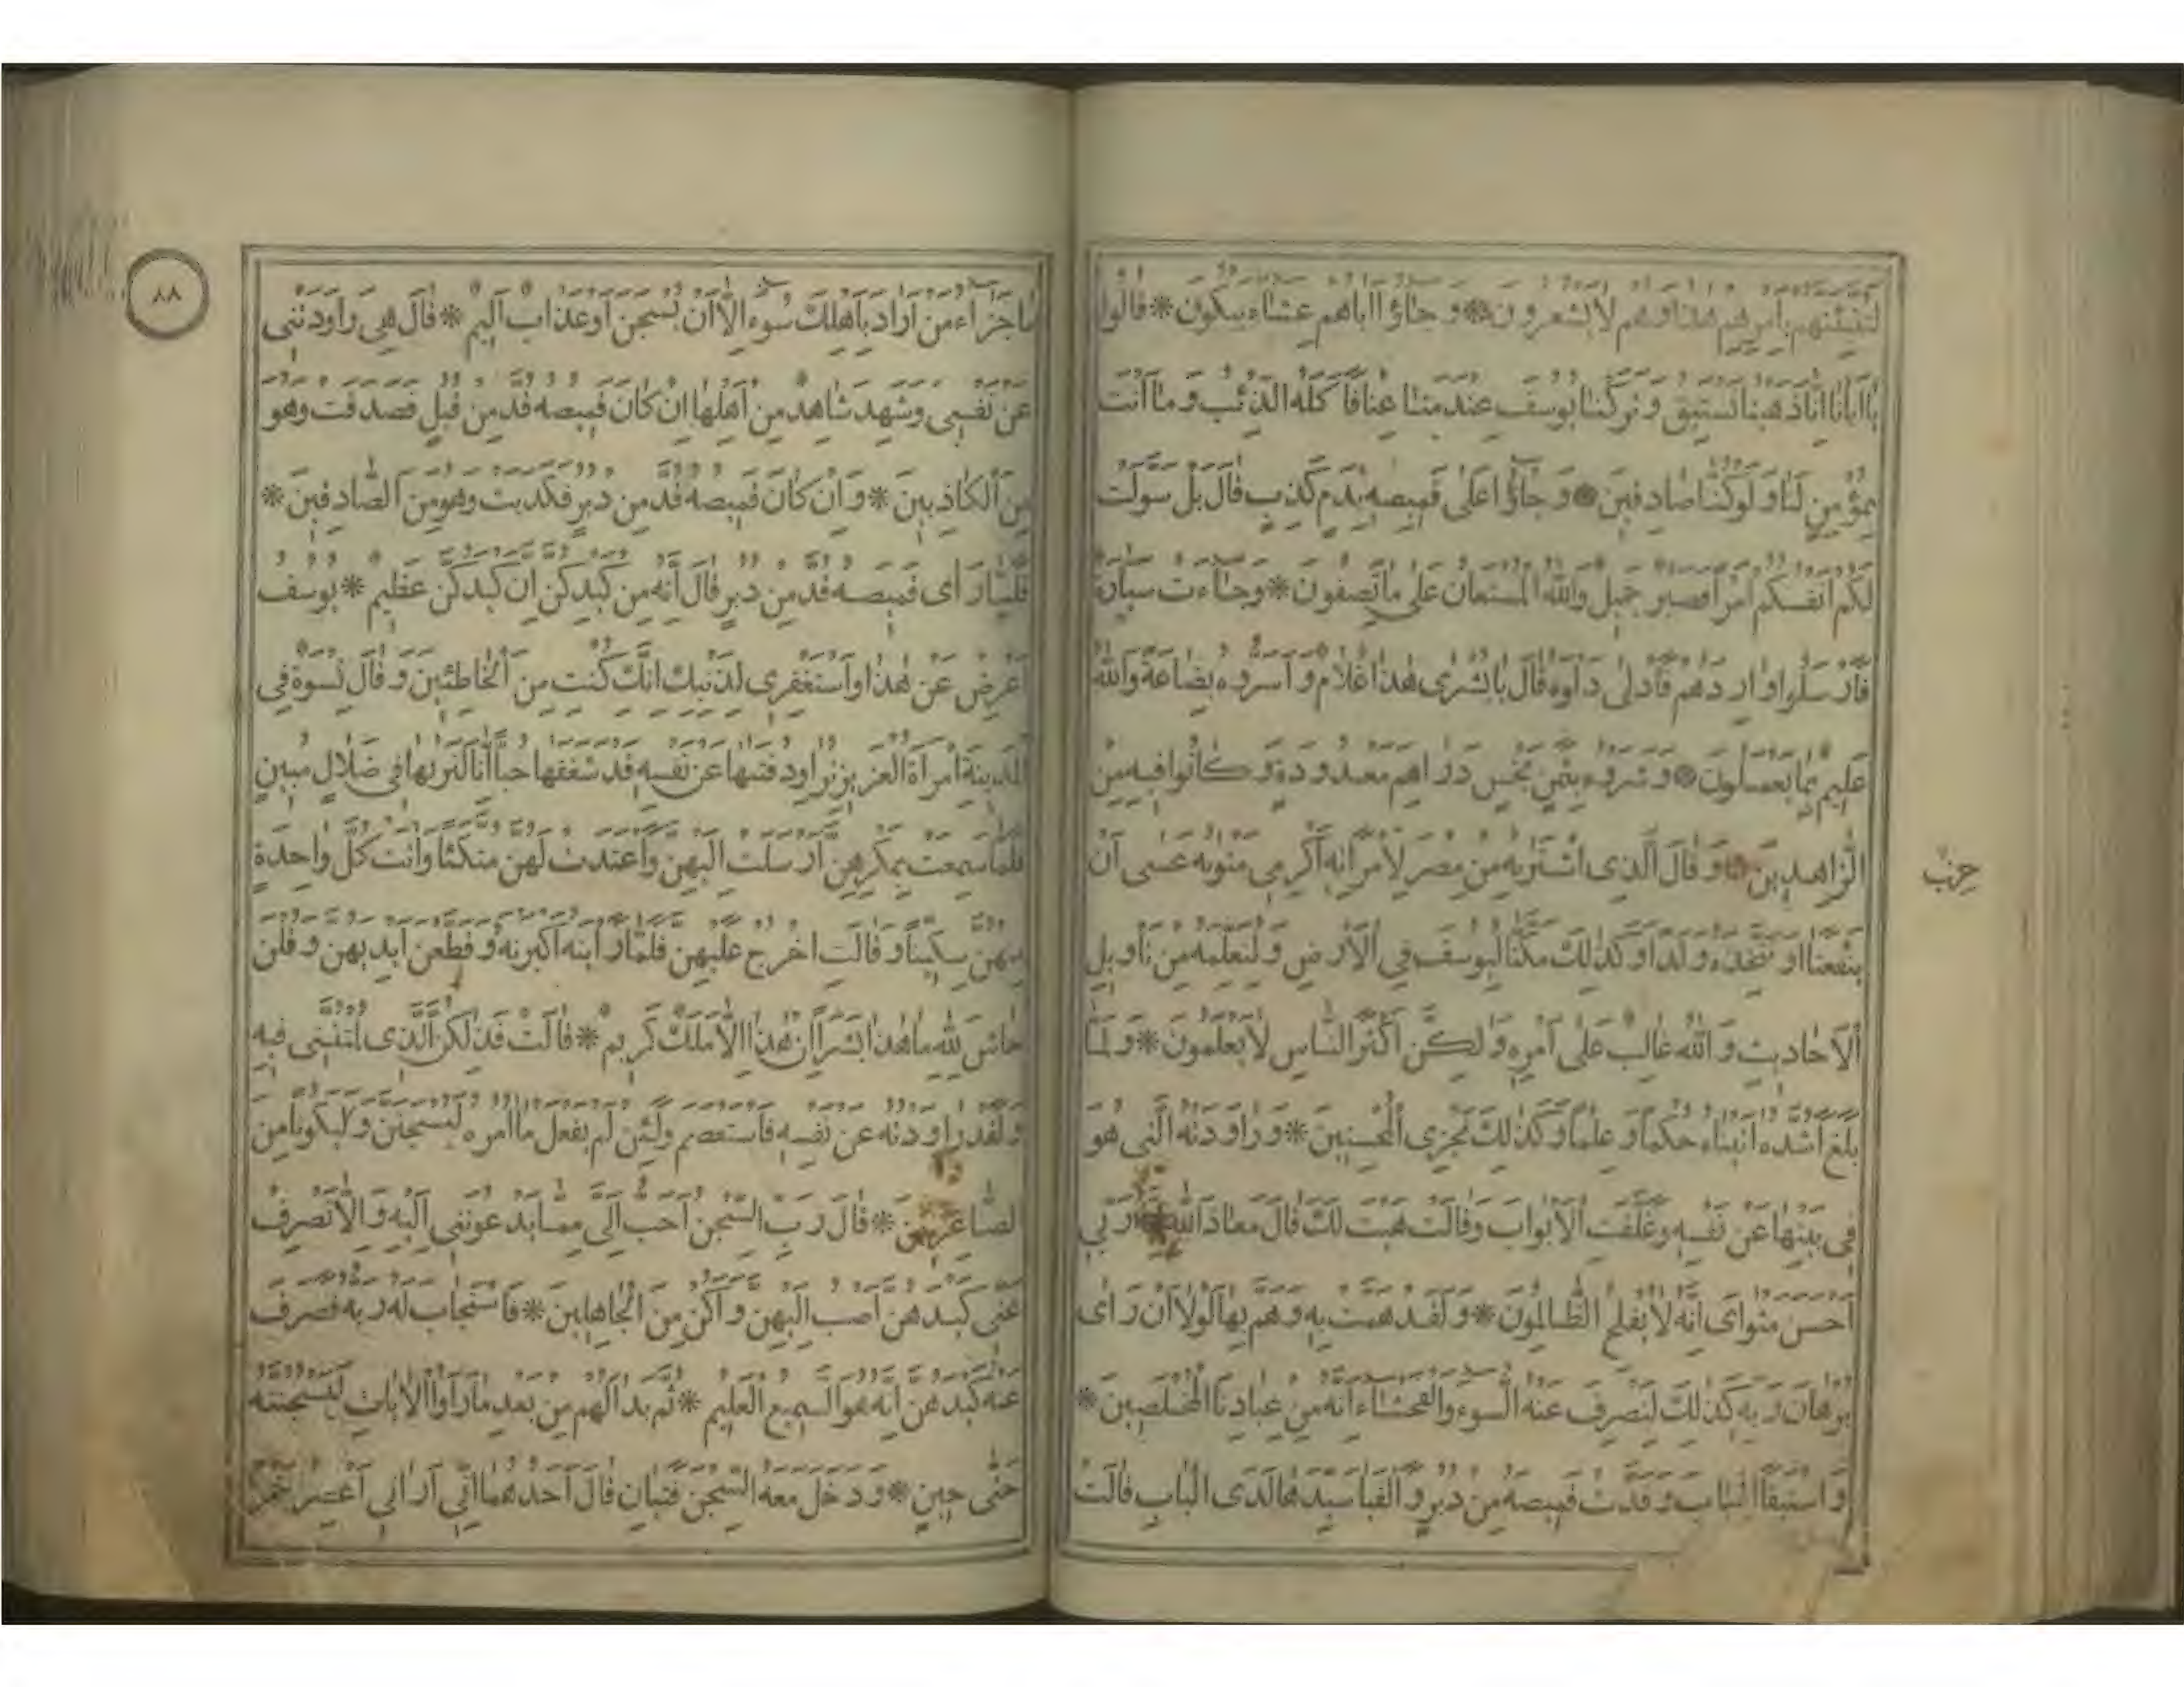 لتنبئنهم بامرهم هذا وهم لا يشعرون * وجاؤا اباهم عشاء يبكون * قالوا
يا ابانا انا ذهبنا نستبق وتركنا يوسف عند متاعنا فاكله الذئب وما انت
بمؤمن لنا ولو كنا صادقين * وجاؤا على قميصه بدم كذب قال بل سولت
لكم انفسكم امرا فصبر جميل والله المستعان على ما تصفون * وجاءت سيارة
فارسلوا واردهم فادلى دلوه قال يا بشرى هذا غلام واسروه بضاعة والله
عليم بما يعملون * وشروه بثمن بخس دراهم معدودة وكانوا فيه من
الزاهدين * وقال الذى اشتريه من مصر لامرأته اكرمى مثويه عسى ان
حزب
ينفعنا او نتخذه ولدا وكذلك مكنا ليوسف فى الارض ولنعلمه من تاويل
الاحاديث والله غالب على امره ولكن اكثر الناس لا يعلمون * ولما
بلغ اشده اتيناه حكما وعلما وكذلك نجزى المحسنين * وراودته التى هو
فى بيتها عن نفسه وغلقت الابواب وقالت هيت لك قال معاذ الله ربى
احسن مثواى انه لا يفلح الظالمون * ولقد همت به وهم بها لولا ان راى
برهان ربه كذلك لنصرف عنه السوء والفحشاء انه من عبادنا المخلصين *
واستبقا الباب وقدت قميصه من دبر والفيا سيدها لدى الباب قالت
٨٨
ما جزاء من اراد باهلك سوء الا ان يسجن او عذاب اليم * قال هى راودتنى
عن نفسى وشهد شاهد من اهلها ان كان قميصه قد من قبل فصدقت وهو
من الكاذبين * وان كان قميصه قد من دبر فكذبت وهو من الصادقين *
فلما راى قميصه قد من دبر قال انه من كيدكن ان كيدكن عظيم * يوسف
اعرض عن هذا واستغفرى لذنبك انك كنت من الخاطئين وقال نسوة فى
المدينة امرأة العزيز تراود فتيها عن نفسه قد شغفها حبا انا لنريها فى ضلال مبين
فلما سمعت بمكرهن ارسلت اليهن واعتدت لهن متكئا واتت كل واحدة
منهن سكينا وقالت اخرج عليهن فلما راينه اكبرنه وقطعن ايديهن وقلن
حاش لله ما هذا بشرا ان هذا الا ملك كريم * قالت فذلكن الذى لمتننى فيه
ولقد راودته عن نفسه فاستعصم ولئن لم يفعل ما امره ليسجنن وليكونا من
الصاغرين * قال رب السجن احب الى مما يدعوننى اليه والا تصرف
عنى كيدهن اصب اليهن واكن من الجاهلين * فاستجاب له ربه فصرف
عنه كيدهن انه هو السميع العليم * ثم بدا لهم من بعد ما راوا الايات ليسجننه
حتى حين * ودخل معه السجن فتيان قال احدهما انى ارانى اعصر خمرا